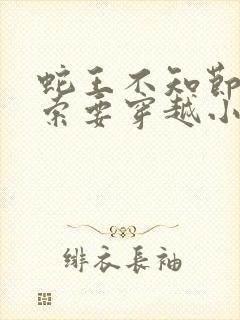 蛇王不知節
索要穿越小
緋衣長袖